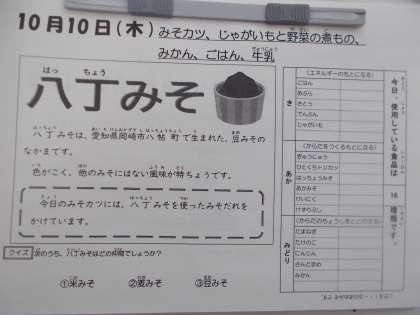 10月10日(木) みそカツ、じゃがいもと野菜の煮もの、
みかん、ごはん、牛乳
はっ ちょう
八丁みそ
八丁みそは、愛知県岡崎市八帖町で生まれた、豆みその
なかまです。
色がこく、他のみそにはない風味が特ちょうです。
今日のみそカツには、八丁みそを使ったみそだれを
かけています。
クイズ 次のうち、八丁みそはどの仲間でしょうか?
①米みそ ②麦みそ ③豆みそ
今日、使用している食品は 18 種類です。
き
(エネルギーのもとになる)
ごはん
あぶら
さとう
でんぷん
じゃがいも
あか
(からだをつくるもとになる)
ぎゅうにゅう
ひとくちトンカツ
はっちょうみそ
あかみそ
けいにく
けずりぶし
みどり
(からだのちょうしをととのえる)
たまねぎ
たけのこ
にんじん
さんどまめ
みかん